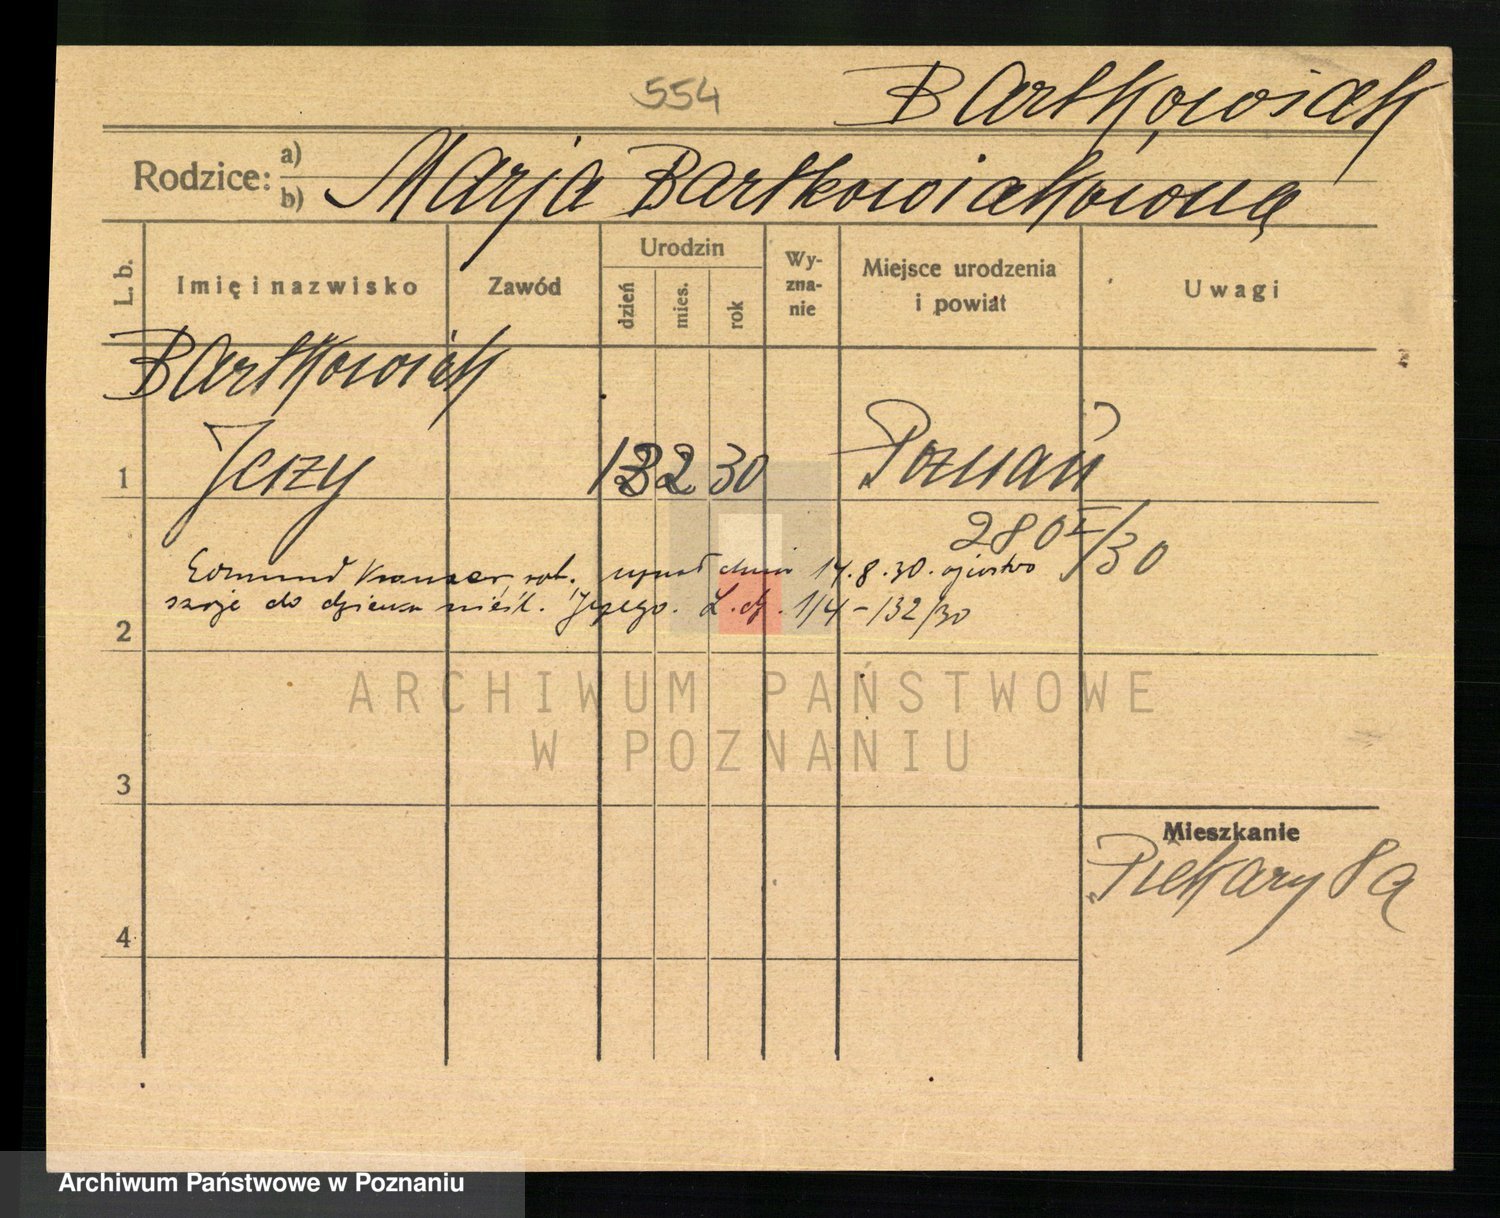 554
Bartkowiak
Rodzice: a)
b) Marja Bartkowiakówna
L. b.
Imię i nazwisko
Zawód
Urodzin
dzień
mies.
rok
Wy-
zna-
nie
Miejsce urodzenia
i powiat
Uwagi
Bartkowiak
1 Jerzy 2 30 Poznań
280 I/30
Edmund rob., uznał dnia 14.8.30. ojcostwo
swoje do dziecka nieśl. Jerzego. L.dz. 1/4-132/30
2
ARCHIWUM PAŃSTWOWE
W POZNANIU
3
Mieszkanie
Piekary 8a
4
Archiwum Państwowe w Poznaniu